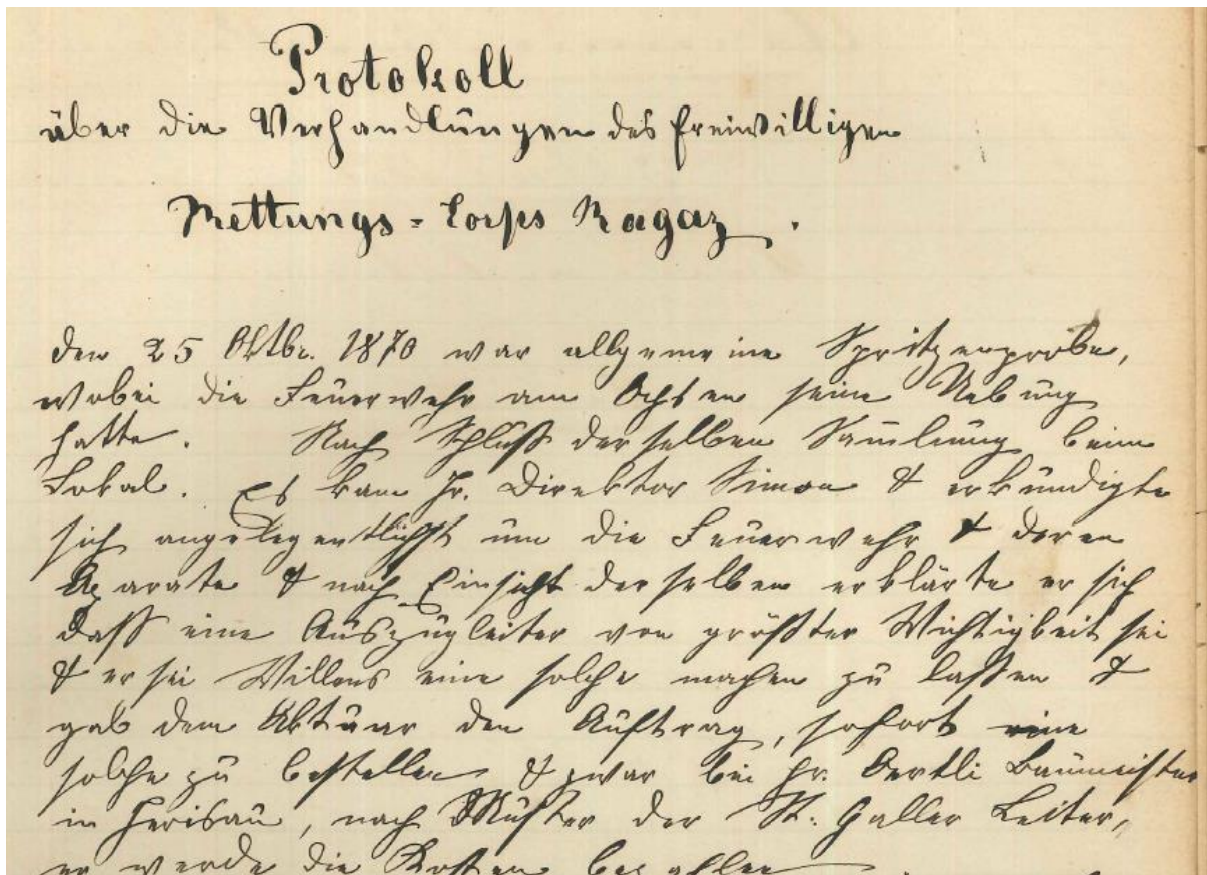 Protokoll
über die Verhandlungen des freiwilligen
Rettungs-Corps Ragaz.
den 25 Oktbr. 1870 war allgemeine Spritzenprobe,
wobei die Feuerwehr am Ochsen seine Uebung
hatte. Nach Schluß derselben Sam̄lung beim
Lokal. Es kam Hr. Direktor Simon & erkundigte
sich angelegentlichst um die Feuerwehr & deren
Aparate & nach Einsicht derselben erklärte er sich
daß eine Auszugleiter von größter Wichtigkeit sei
& er sei Willens eine solche machen zu laßen &
gab dem Aktuar den Auftrag, sofort eine
solche zu bestellen & zwar bei Hr. Oertli Baumeister
in Herisau, nach Muster der St. Galler Leiter,
er werde die Kosten bezahlen